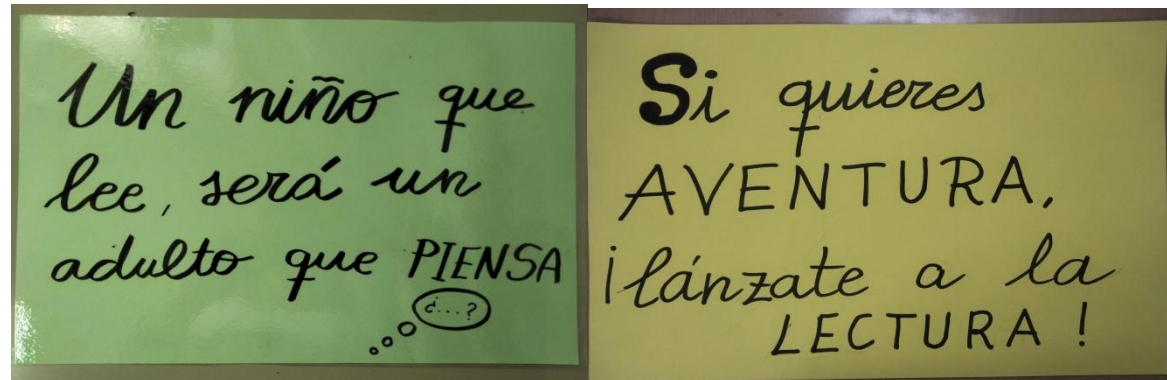 Un niño que
lee, será un
adulto que PIENSA
¿...?
Si quieres
AVENTURA,
¡lánzate a la
LECTURA!